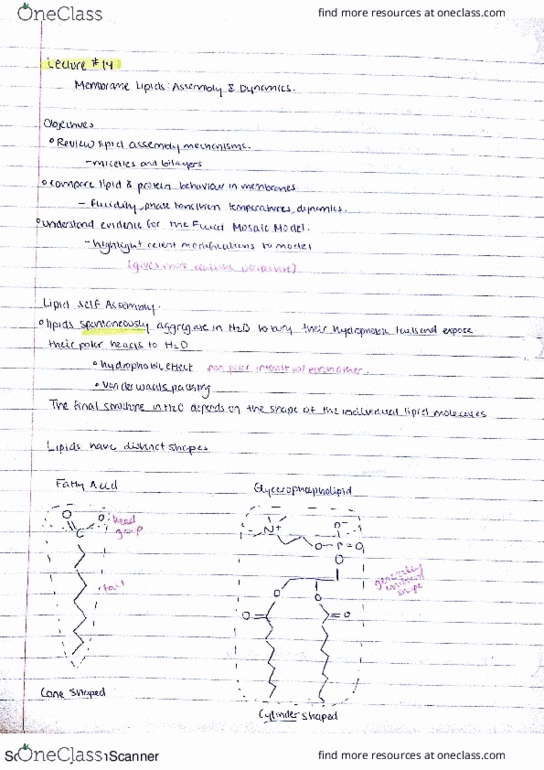 OneClass
find more resources at oneclass.com
Lecture #14
Membrane Lipids: Assembly & Dynamics.
Objectives
Review lipid assembly mechanisms.
- micelles and bilayers
compare lipid & protein behaviour in membranes
- fluidity, phase transition temperatures, dynamics.
understand evidence for the Fluid Mosaic Model.
- highlight recent modifications to model
(gives more
Lipid Self Assembly.
lipids spontaneously aggregate in H2O to bury their hydrophobic tails and expose
their polar heads to H2O
hydrophobic effect non polar
Van der waals packing
The final structure in H2O depends on the shape of the individual lipid molecules
Lipids have distinct shapes
Fatty Acid
Glycerophospholipid
O
O
C
head
group
N+
O-
O-P=O
O
tail
generally
shape
O
O
O
O
Cone shaped
Cylinder shaped
OneClass
Scanner
find more resources at oneclass.com